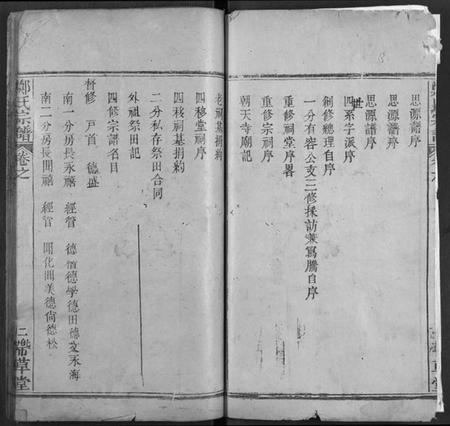 思源譜序
思源譜序
思源譜序
四系字派序
創修總理自序
一分有容公支三修採訪兼寫謄自序
重修祠堂序畧
重修宗祠序
朝天寺廟記
老祠基捐約
四移堂祠序
四移祠基捐約
二分私存祭田合同
外祖祭田記
四修宗譜名目
督修 戸首 德盛
南一分房長永禧 經管 德循德學德田德文永海
南二分房長開禧 經管 開化開美德尚德松
鄭氏宗譜 卷之
二 端草堂